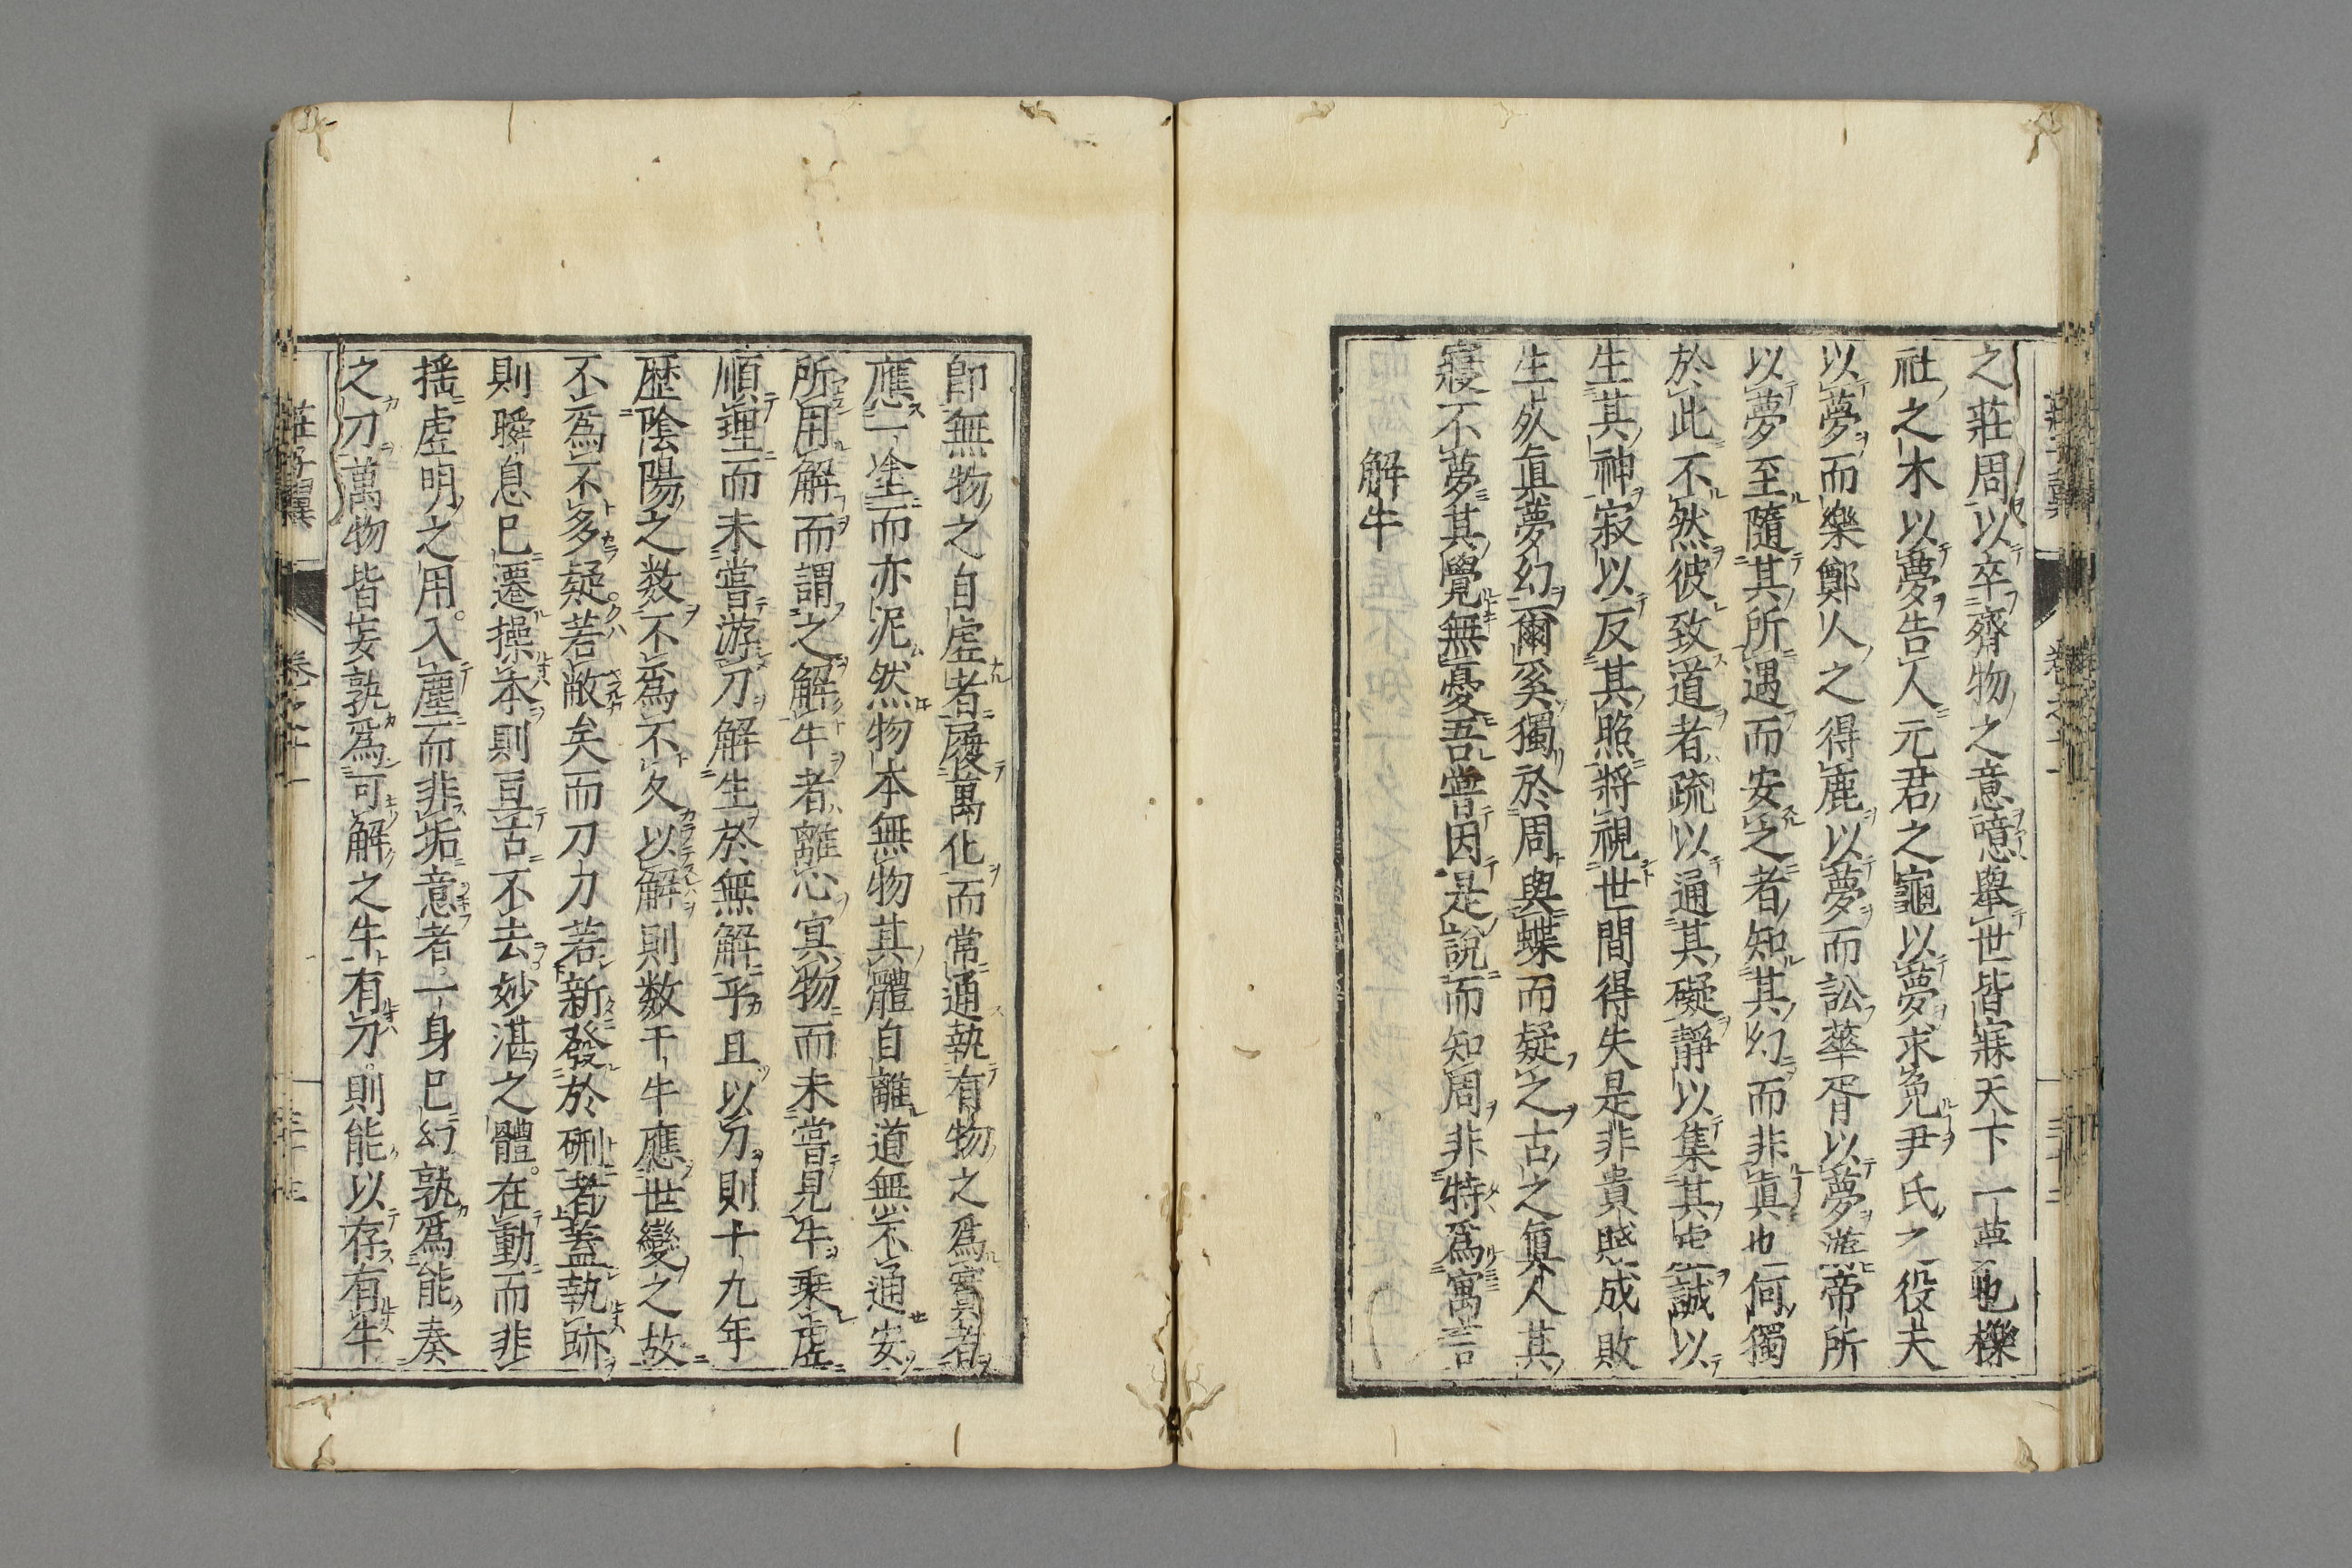 之莊周以卒齊物之意噫舉世皆寐天下一夢也櫟
社之木以夢告人元君之龜以夢求免尹氏之役夫
以夢而樂鄭人之得鹿以夢而訟華胥以夢游帝所
以夢至隨其所遇而安之者知其幻而非眞也何獨
於此不然彼致道者疏以通其礙靜以集其虛誠以
生其神寂以反其照將視世間得失是非貴賤成敗
生死眞夢幻爾奚獨於周與蝶而疑之古之眞人其
寢不夢其覺無憂吾嘗因是說而知周非特爲寓言
解牛
卽無物之自虛者履萬化而常通執有物之爲實者
應一塗而亦泥然物本無物其體自離道無不通安
所用解而謂之解牛者離心冥物而未嘗見牛乘虛
順理而未嘗游刀解生於無解乎且以刀則十九年
歴陰陽之数不爲不久以解則数千牛應世變之故
不爲不多疑若敝矣而刀刀若新發於硎者蓋執迹
則瞬息已遷操本則亘古不去妙湛之體在動而非
揺虛明之用入塵而非垢意者一身已幻孰爲能奏
之刀萬物皆妄孰爲可解之牛有刀則能以存有牛
莊子翼 卷之十一